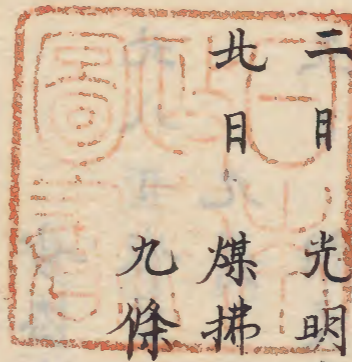 二日 光明
廿日 煤拂
九條